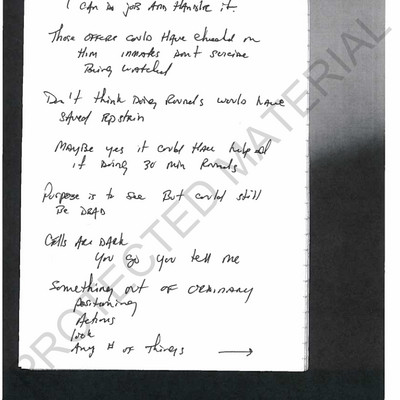 I can do job and Handle it.
Those officers could have checked on
Him inmates Don't suicide
Being watched
Don't think Doing Rounds would have
saved Epstein
Maybe yes it could have helped
if Doing 30 min Rounds
Purpose is to see But could still
Be DEAD
Cells Are DARK
You go you tell me
Something out of ordinary
Positioning
Actions
look
Any # of Things →
PROTECTED MATERIAL